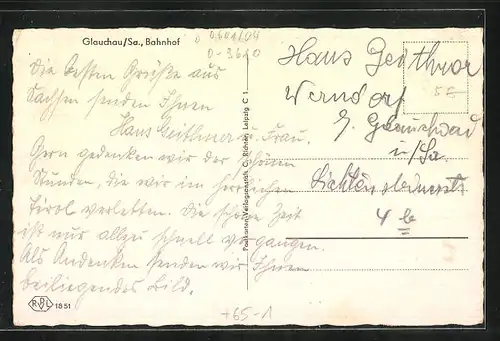 Glauchau/Sa., Bahnhof
Die besten Grüße aus
Sachsen senden Ihnen
Hans Geithner u. Frau.
Gern gedenken wir der schönen
Stunden, die wir im herrlichen
Tirol verlebten. Die schöne Zeit
ist nur allzu schnell vergangen.
Als Andenken senden wir Ihnen
beiliegendes Bild.
RBL 1851
Postkarten-Verlagsanstalt C. Richter, Leipzig C 1
Hans Geithner
Werndorf
b. Glauchau
i/Sa.
4 b
+65-1